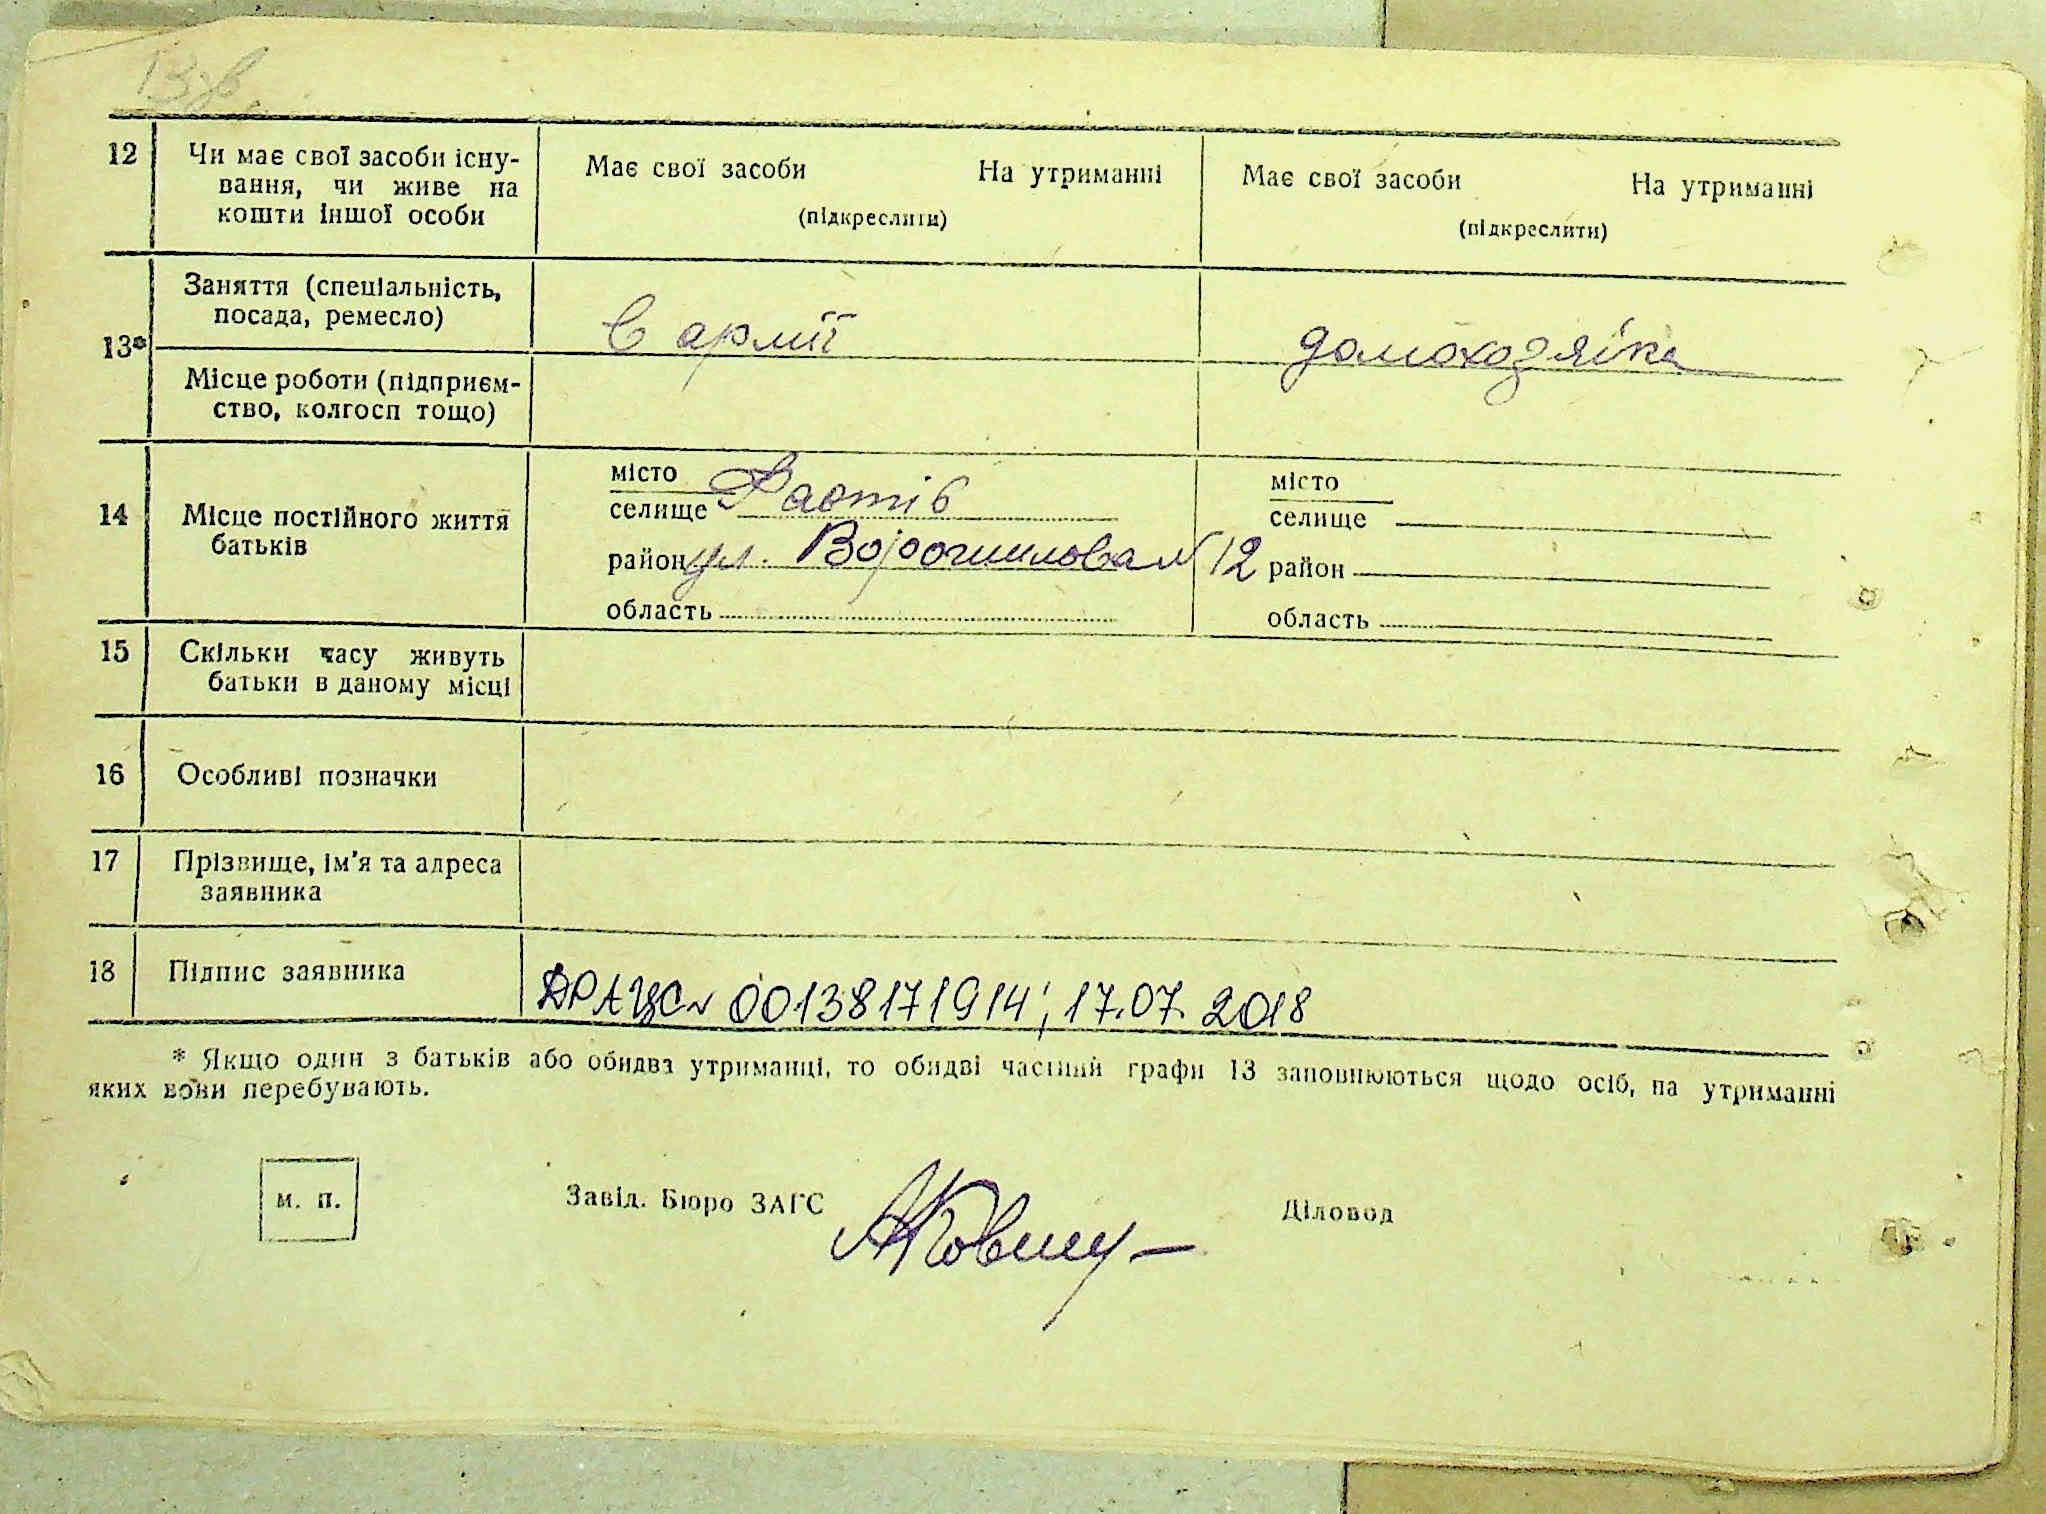 13зв
12 Чи має свої засоби існу-
вання, чи живе на
кошти іншої особи
Має свої засоби На утриманні
(підкреслити)
Має свої засоби На утриманні
(підкреслити)
13*
Заняття (спеціальність,
посада, ремесло)
в армії
домохозяйка
Місце роботи (підприєм-
ство, колгосп тощо)
14 Місце постійного життя
батьків
місто
селище Фастів
район ул. Ворошилова № 12
область
місто
селище
район
область
15 Скільки часу живуть
батьки в даному місці
16 Особливі позначки
17 Прізвище, ім'я та адреса
заявника
18 Підпис заявника
ДРАЦС № 00138171914; 17.07.2018
* Якщо один з батьків або обидва утриманці, то обидві частини графи 13 заповнюються щодо осіб, на утриманні
яких вони перебувають.
м. п.
Завід. Бюро ЗАГС
Діловод